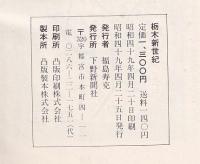 栃木新世紀
定価一、三〇〇円 送料一四〇円
昭和四十九年四月二十日印刷
昭和四十九年四月二十五日発行
発行者 福島寿克
発行所 下野新聞社
〒320 宇都宮市本町四ー一一
電〇二八六ー二二ー七五一二(代)
印刷所 凸版印刷株式会社
製本所 凸版製本株式会社